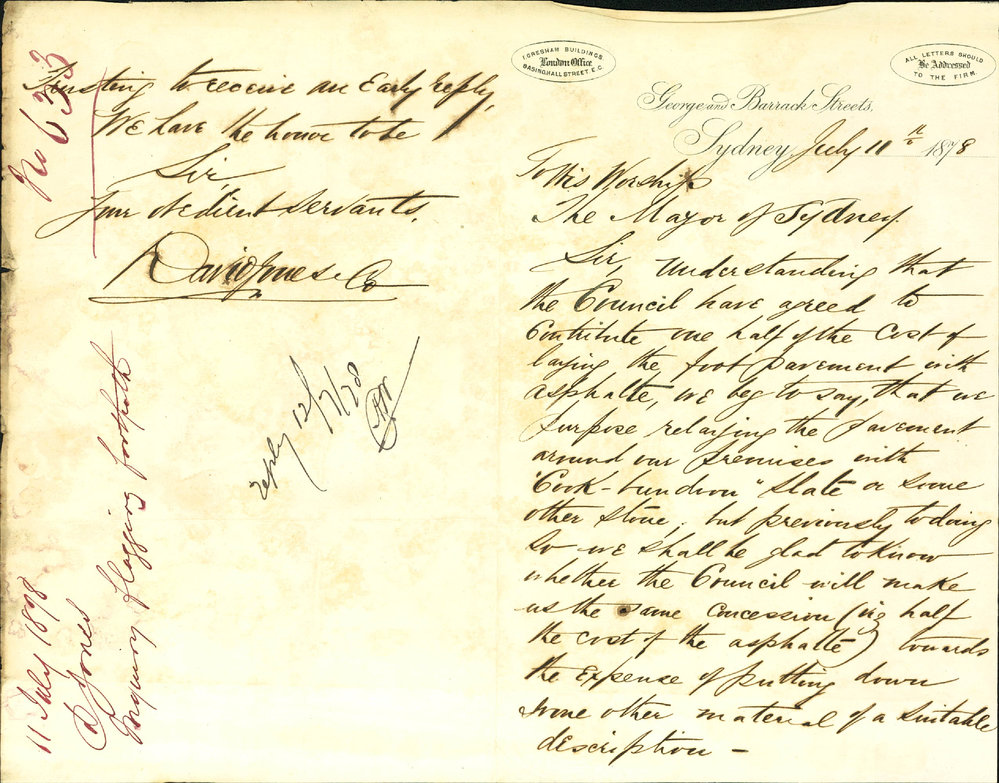 1 GRESHAM BUILDINGS.
London Office
BASINGHALL STREET, E.C.
ALL LETTERS SHOULD
Be Addressed
TO THE FIRM.
George and Barrack Streets,
Sydney July 11th 1878
To His Worship
The Mayor of Sydney.
Sir, Understanding that
the Council have agreed to
Contribute one half of the cost of
laying the foot pavement with
asphalte, we beg to say, that we
purpose relaying the pavement
around our premises with
"Cook-bundoon" Slate or some
other stone; but previously to doing
so we shall be glad to know
whether the Council will make
us the same concession (viz half
the cost of the asphalte) towards
the expense of putting down
some other material of a suitable
description -
Trusting to receive an Early reply,
We have the honor to be
Sir,
Your obedient servants,
David Jones & Co
reply 12/7/78
No 633
11 July 1878
D Jones
Enquiry flagging footpath